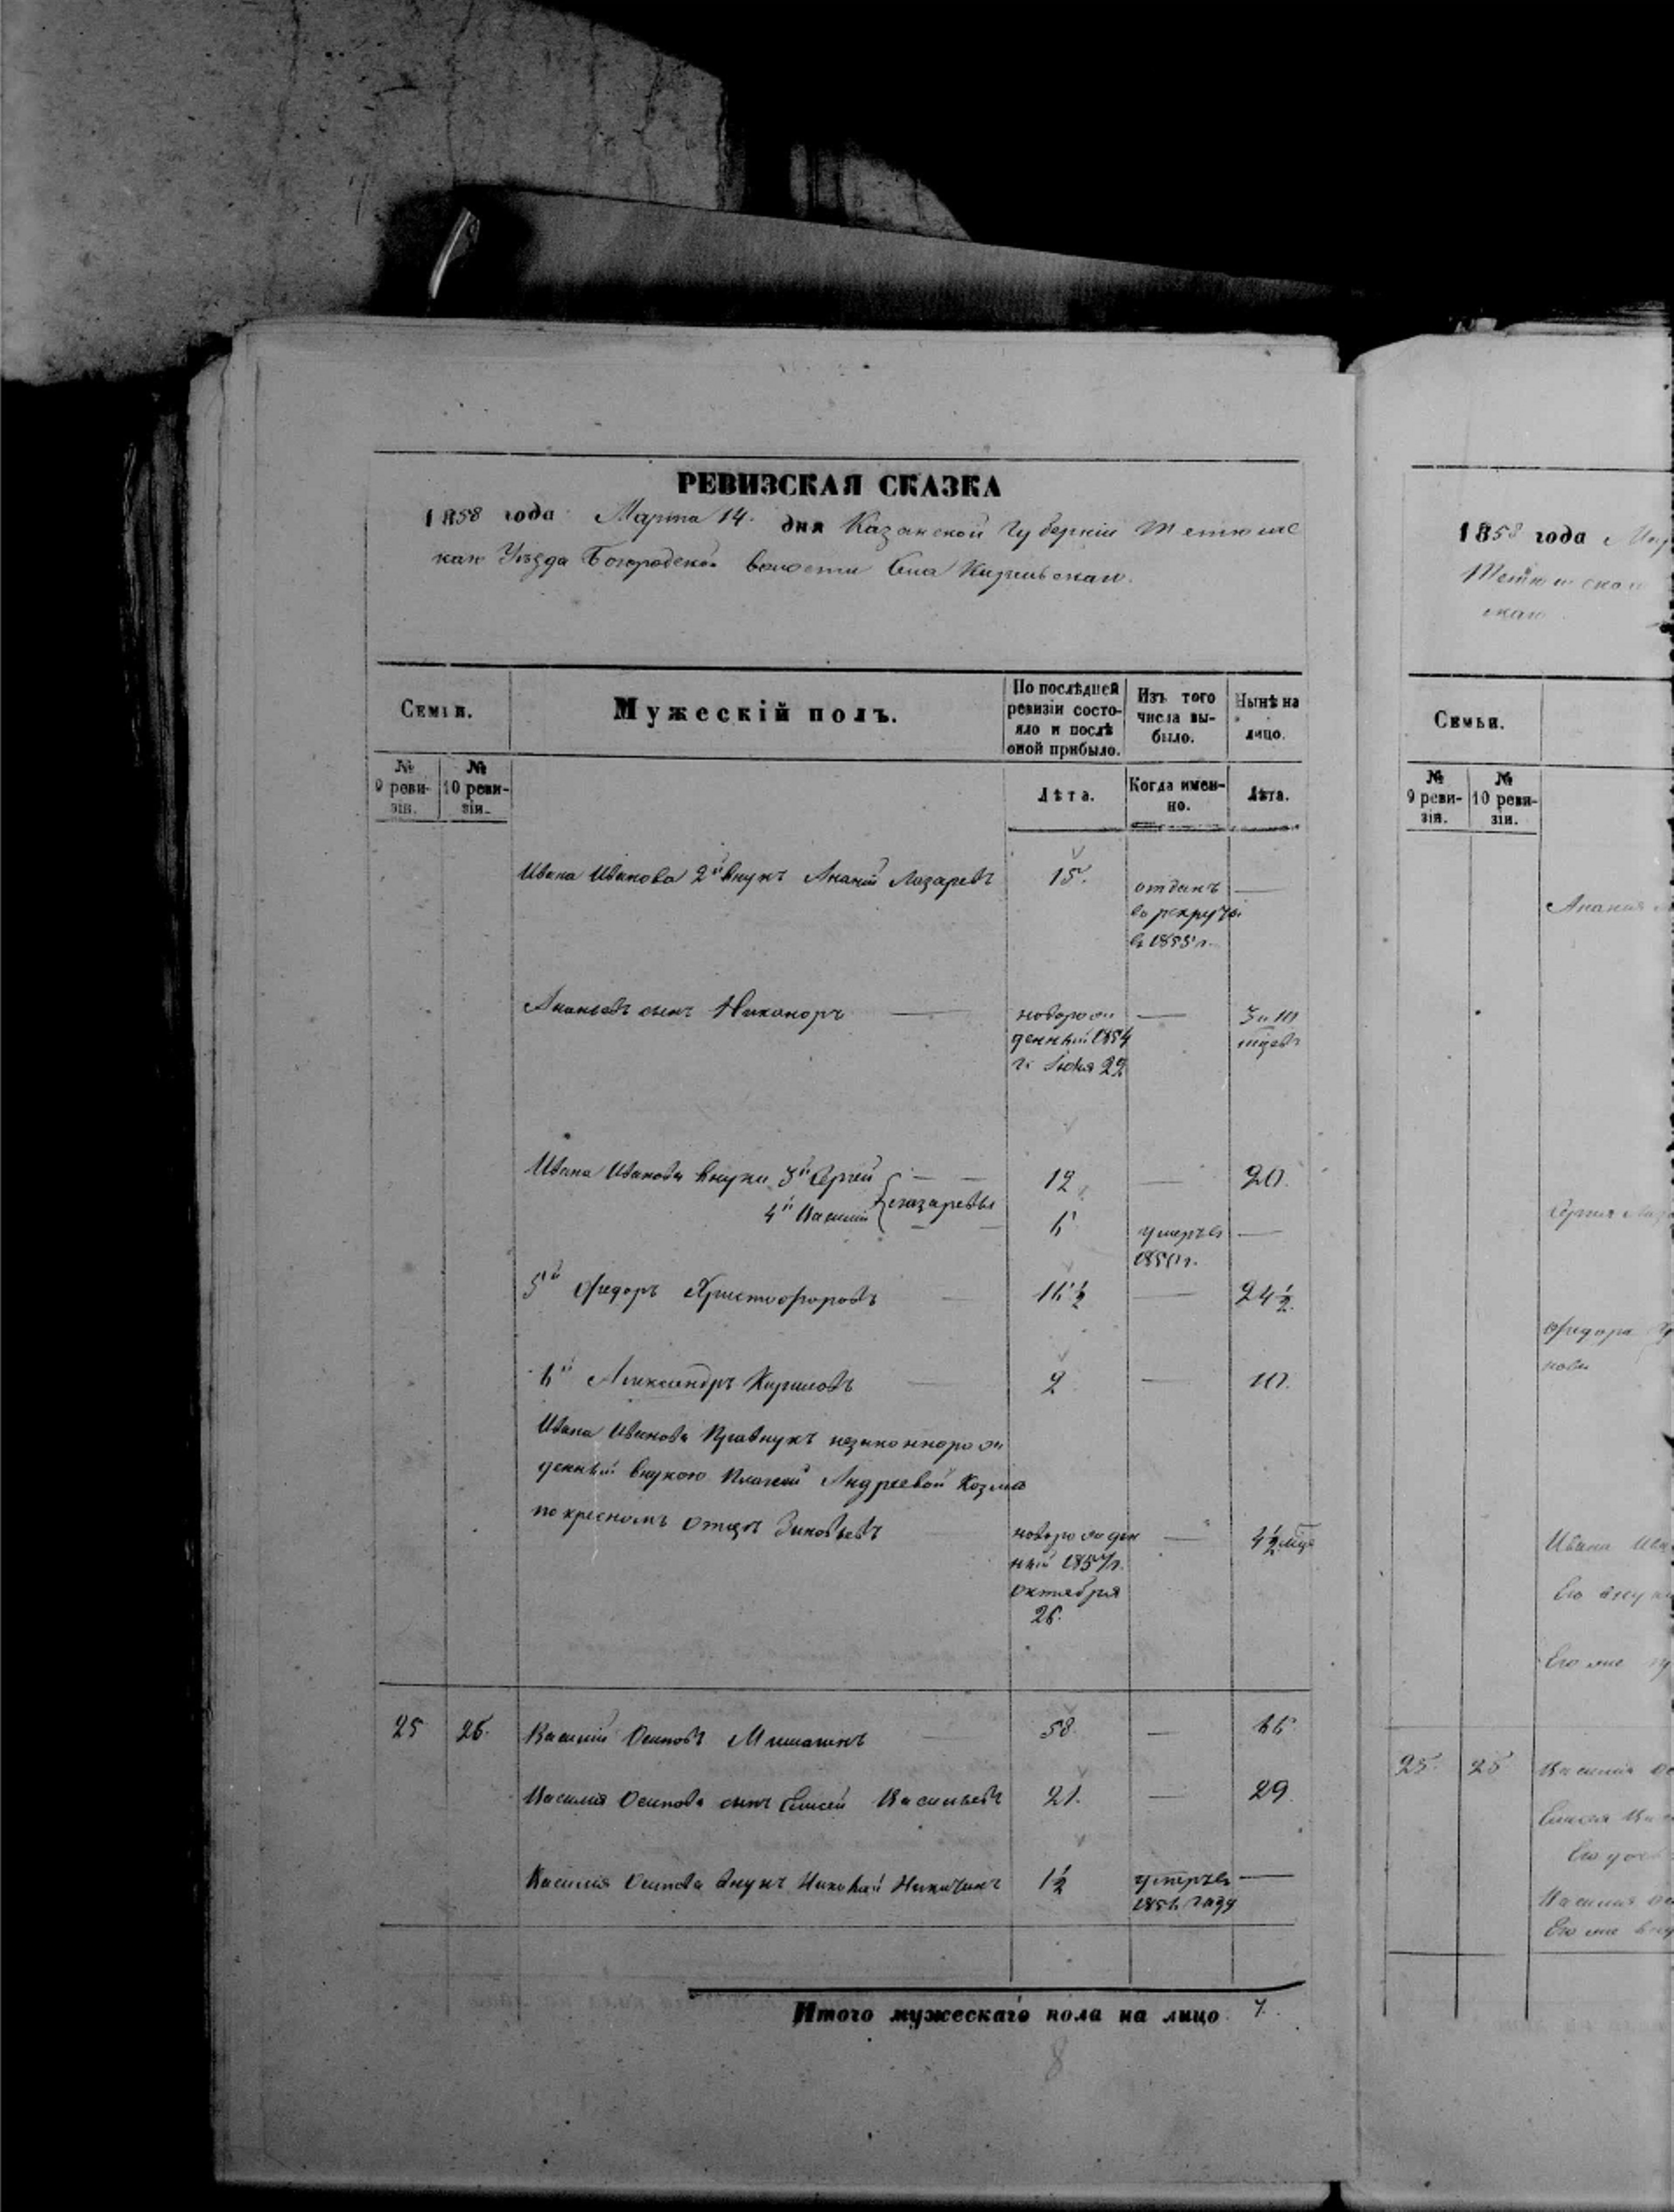 РЕВИЗСКАЯ СКАЗКА
1858 года Марта 14. дня Казанской Губерніи Тетюшс
каго Уѣзда Богородской волости Села
Семьи.
Мужескій полъ.
По послѣдней ревизіи состо-
яло и послѣ
оной прибыло.
Изъ того
числа вы-
было.
Нынѣ на
лицо.
№
9 реви-
зіи.
№
10 реви-
зіи.
Лѣта.
Когда имен-
но.
Лѣта.
Ивана Иванова 2й внукъ Ананій Лазаревъ 15. отданъ —
въ рекруты
въ 1855 г.
Ананьевъ сынъ Никаноръ — новорож — 3 и
денный 1854 мцевъ
г.
Ивана Иванова внуки 3й Сергей — 12 — 20.
4й Василій Лазаревы — 6 умеръ въ —
г.
5й Федоръ Христофоровъ — 16½ — 24½.
6й Александръ Кириловъ — 2 — 10.
Ивана Иванова Правнукъ незаконнорож
денный внукою Андреевой Козма
по кресномъ отцѣ Зиновьевъ новорожден — 4½ мца
ный 1857 г.
октября
26.
25 26. Василій Осиповъ 58. — 66.
Василія Осипова сынъ Елисей Васильевъ 21. — 29.
Василія Осипова внукъ Николай Никитинъ 1½ умеръ въ —
году
Итого мужескаго пола на лицо 7.
8
1858 года
Семьи.
№
9 реви-
зіи.
№
10 реви-
зіи.
Анания
Сергея
Федора
Ивана
Его внуки
Его же
25. 26 Василія
Елисея
Его
Василія
Его же